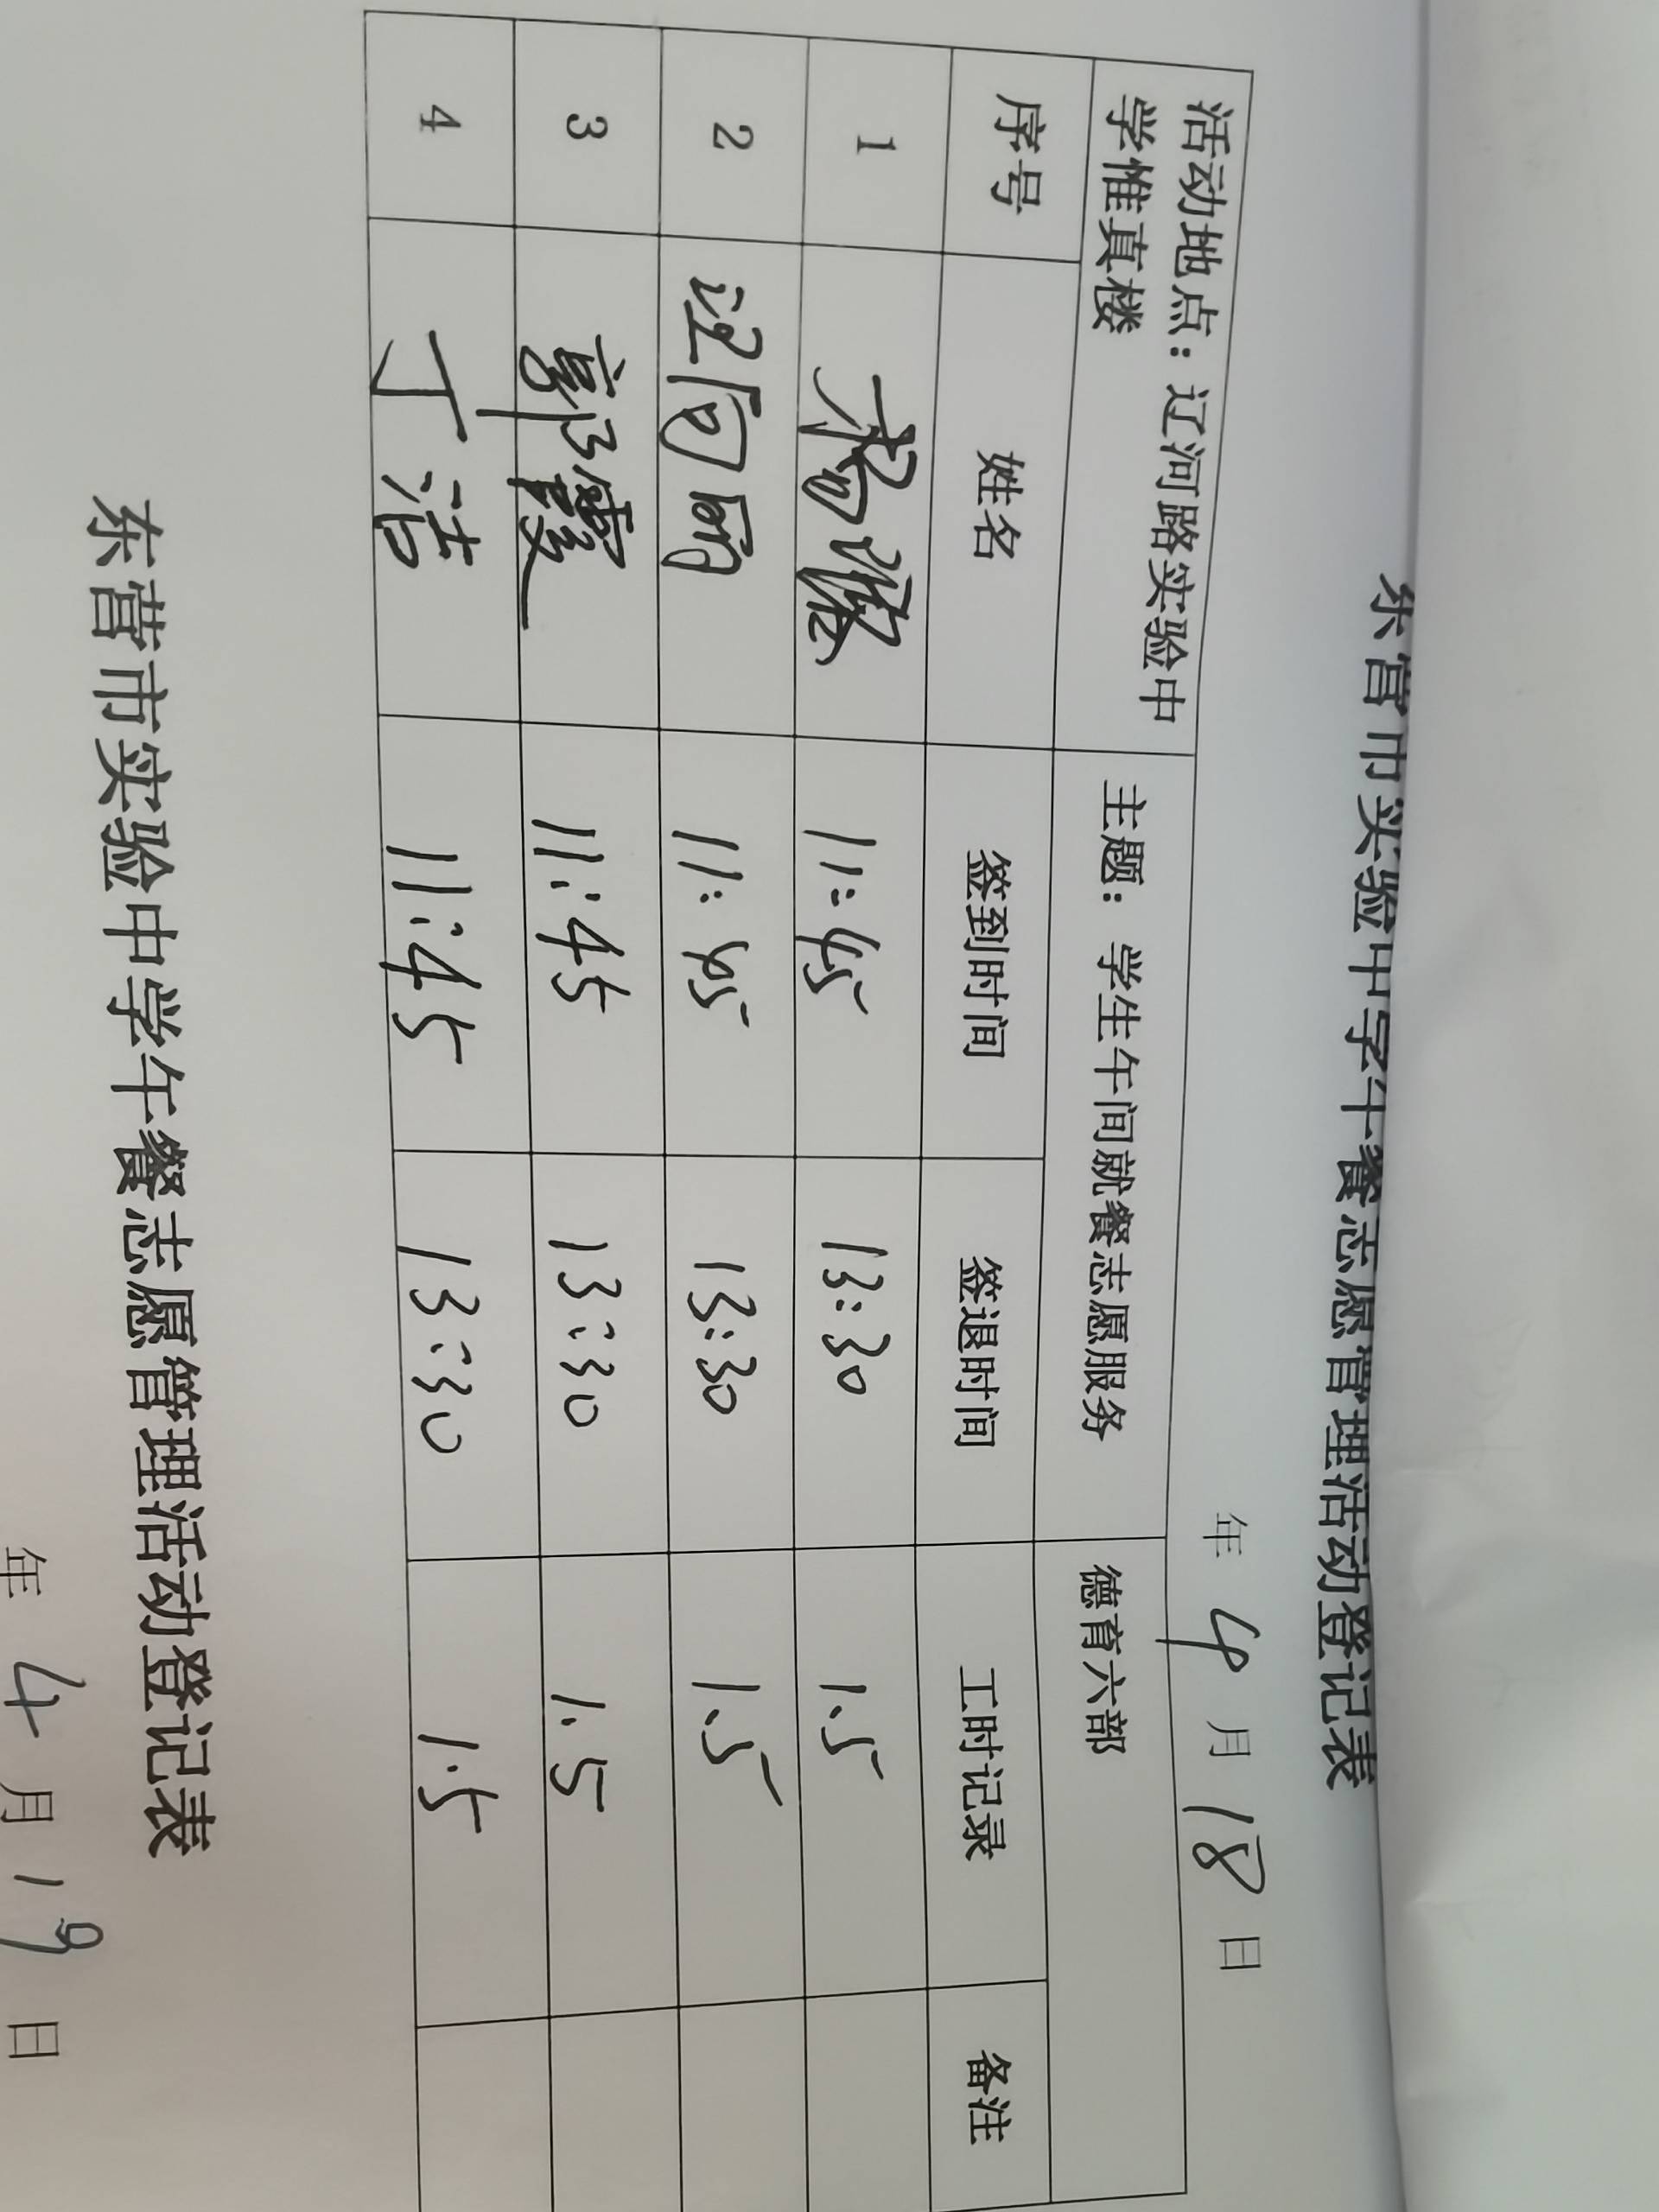 东营市实验中学午餐志愿管理活动登记表
年 4 月 18 日
活动地点：辽河路实验中学惟真楼 主题：学生午间就餐志愿服务 德育六部
序号 姓名 签到时间 签退时间 工时记录 备注
1 杨 11:45 13:30 1.5
2 11:45 13:30 1.5
3 郭霞 11:45 13:30 1.5
4 丁洁 11:45 13:30 1.5
东营市实验中学午餐志愿管理活动登记表
年 4 月 19 日